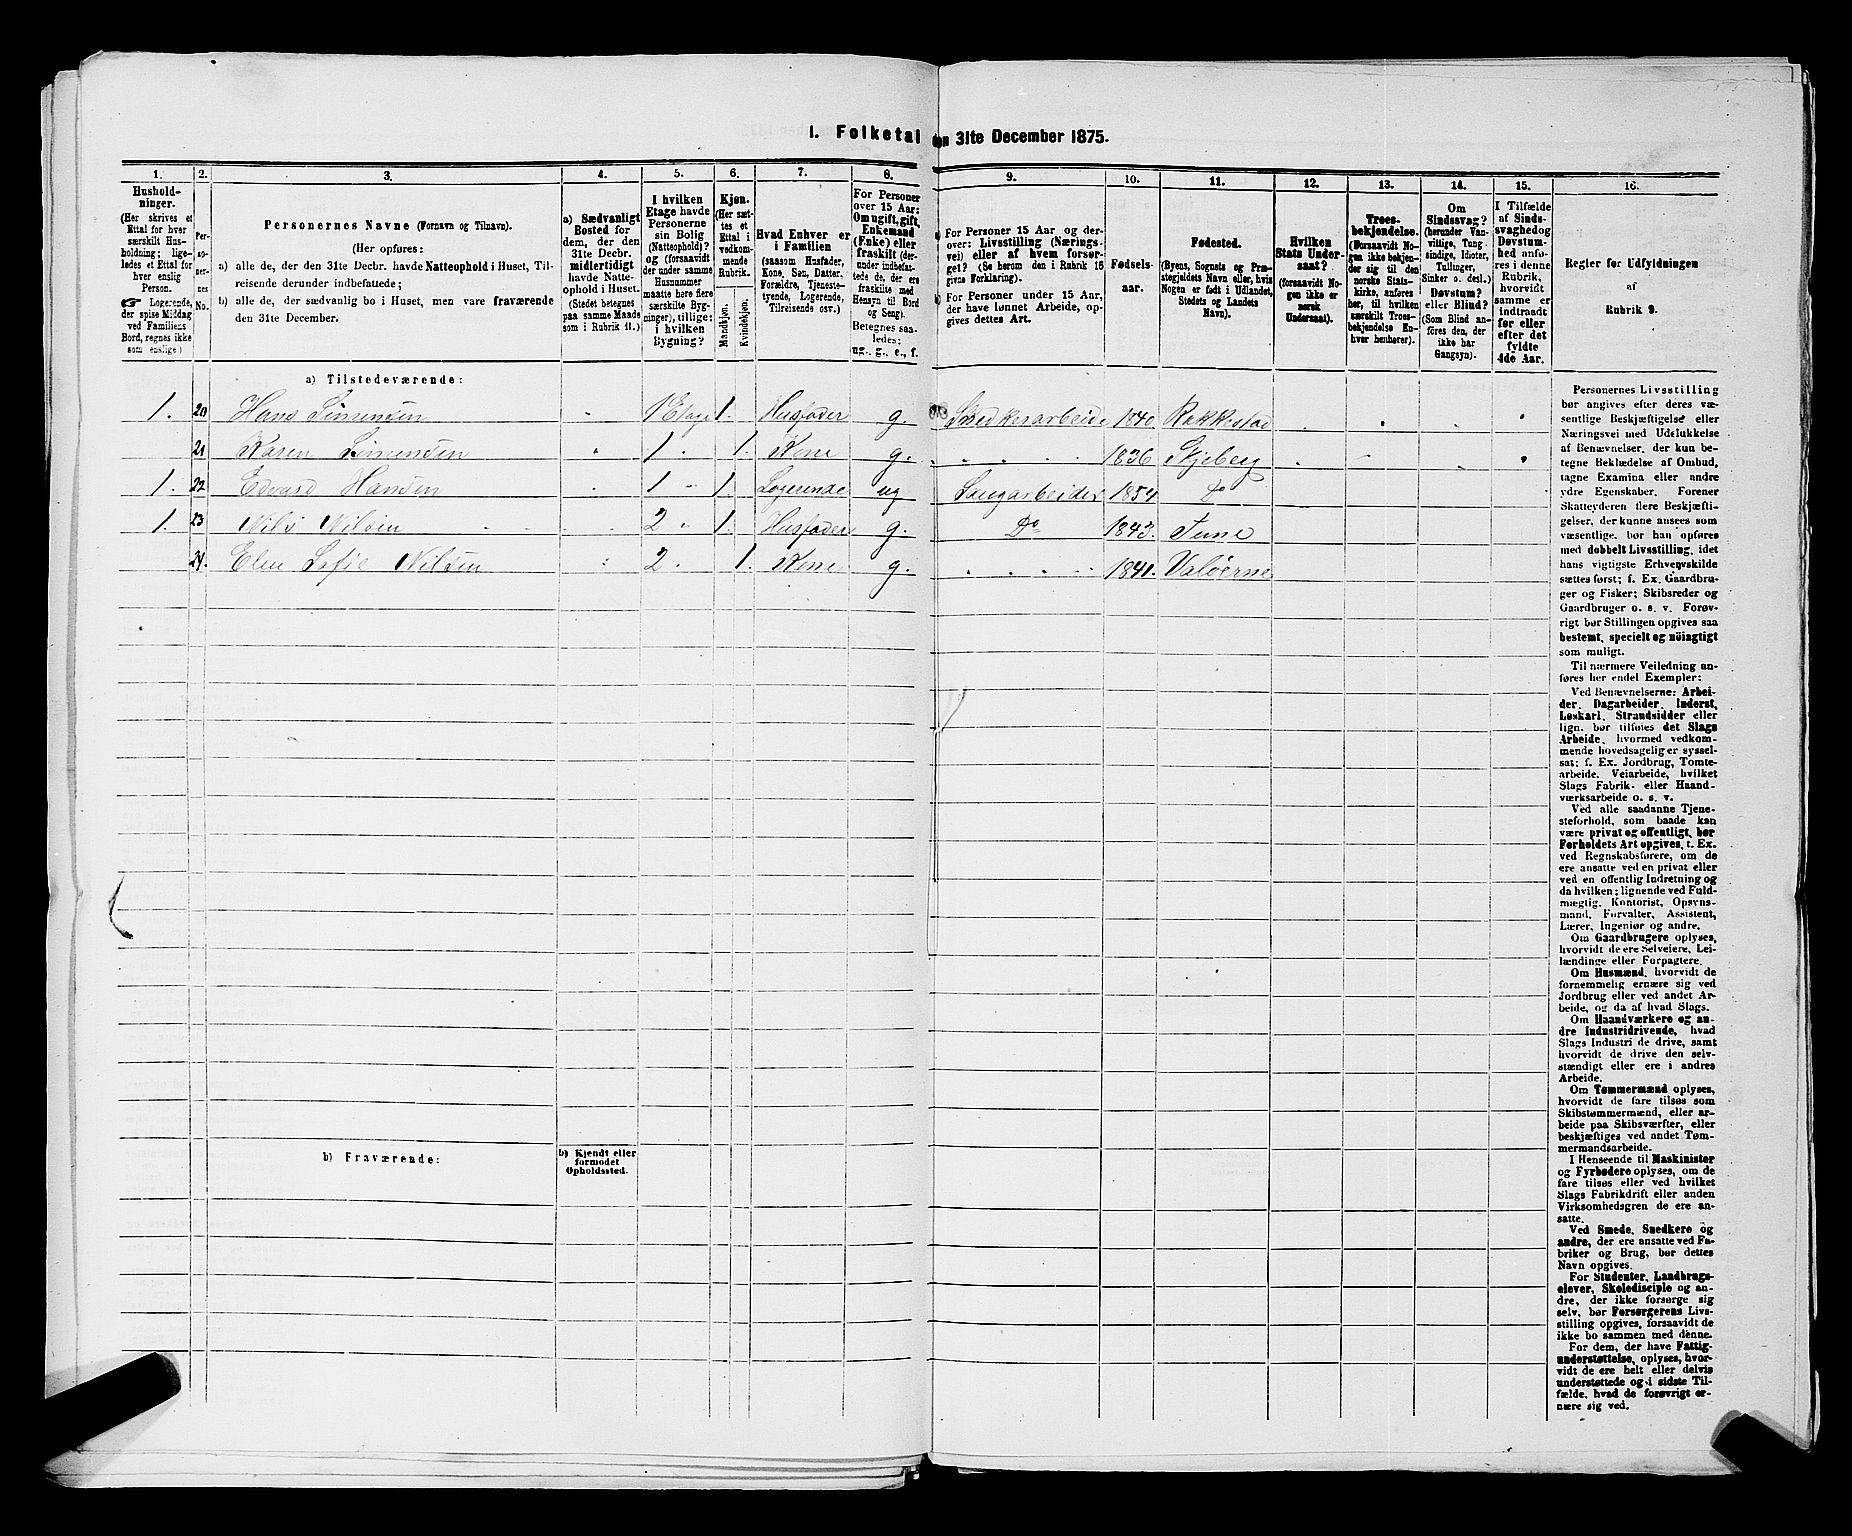 1. Folketal den 31te December 1875.
1. 2. 3. 4. 5. 6. 7. 8. 9. 10. 11. 12. 13. 14. 15. 16.
Husholdninger.
(Her skrives et
Ettal for hver
særskilt Husholdning;
ligeledes et Ettal for
hver enslig
Person.
☞ Logerende,
der spise Middag
ved Familiens
Bord, regnes ikke
som enslige)
Personernes No.
Personernes Navne (Fornavn og Tilnavn).
(Her opføres:
a) alle de, der den 31te Decbr. havde Natteophold i Huset, Tilreisende derunder indbefattede;
b) alle de, der sædvanlig bo i Huset, men vare fraværende
den 31te December.
a) Sædvanligt
Bosted for
dem, der den
31te Decbr.
midlertidigt
havde Natteophold
i Huset.
(Stedet betegnes
paa samme Maade
som i Rubrik 11.)
I hvilken
Etage havde
Personerne
sin Bolig
(Natteophold)?
og (forsaavidt
der under samme
Husnummer
maatte høre flere
særskilte Bygninger),
tillige:
i hvilken
Bygning?
Kjøn.
(Her sættes
et
Ettal i
vedkommende
Rubrik.
Mandkjøn.
Kvindekjøn.
Hvad Enhver er
i Familien
(saasom Husfader,
Kone, Søn, Datter,
Forældre, Tjenestetyende,
Logerende,
Tilreisende osv.)
For Personer
over 15 Aar:
Om ugift, gift,
Enkemand
(Enke) eller
fraskilt (derunder
indbefattede
de, der ere
fraskilte med
Hensyn til Bord
og Seng).
Betegnes saaledes:
ug., g., e., f.
a) For Personer 15 Aar og derover:
Livsstilling (Næringsvei)
eller af hvem forsørget?
(Se herom den i Rubrik 16
givne Forklaring).
b) For Personer under 15 Aar,
der have lønnet Arbeide, opgives
dettes Art.
Fødselsaar.
Fødested.
(Byens, Sognets og Præstegjeldets
Navn eller, hvis
Nogen er født i Udlandet,
Stedets og Landets
Navn).
Hvilken
Stats Undersaat?
(forsaavidt Nogen
ikke er
norsk
Undersaat).
Troesbekjendelse.
(Forsaavidt Nogen
ikke bekjender
sig til den
norske Statskirke,
anføres
her, til hvilken
særskilt Troesbekjendelse
Enhver
henhører).
Om
Sindssvag?
(herunder Vanvittige,
Tungsindige,
Idioter,
Tullinger,
Sinker o. desl.)
Døvstum?
eller Blind?
(Som Blind anføres
den, der
ikke har
Gangsyn).
I Tilfælde
af Sindssvaghed
og
Døvstumhed
anføres
i denne
Rubrik,
hvorvidt
samme er
indtraadt
før eller
efter det
fyldte
4de Aar.
Regler for Udfyldningen
af
Rubrik 9.
a) Tilstedeværende:
1. 20 Hans Simensen 1 Etage 1. Husfader g. Snedkerarbeide 1840. Rakkestad
21 Karen Simensen 1 " 1. Kone g. 1836 Skjeberg
1. 22 Edvard Hansen 1 " 1. Logerende ug Saugarbeider 1854 Do
1. 23 Nils Nilsen 2 " 1. Husfader g. Do 1843. Tune
24. Elen Sofie Nilsen 2 1. Kone g. 1841. Valøerne
b) Fraværende:
b) Kjendt eller
formodet
Opholdssted.
Personernes Livsstilling
bør angives efter deres væsentlige
Beskjæftigelse eller
Næringsvei med Udelukkelse
af Benævnelser, der kun betegne
Beklædelse af Ombud,
tagne Examina eller andre
ydre Egenskaber. Forener
Skatteyderen flere Beskjæftigelser,
der kunne ansees som
væsentlige, bør han opføres
med dobbelt Livsstilling, idet
hans vigtigste Erhvervskilde
sættes først; f. Ex. Gaardbruger
og Fisker; Skibsreder og
Gaardbruger o. s. v. Forøvrigt
bør Stillingen opgives saa
bestemt, specielt og nøiagtigt
som muligt.
Til nærmere Veiledning anføres
her endel Exempler:
Ved Benævnelserne: Arbeider,
Dagarbeider, Inderst,
Løskarl, Strandsidder eller
lign. bør tilføies det Slags
Arbeide, hvormed vedkommende
hovedsagelig er sysselsat;
f. Ex. Jordbrug, Tomtearbeide,
Veiarbeide, hvilket
Slags Fabrik- eller Haandværksarbeide
o. s. v.
Ved alle saadanne Tjenesteforhold,
som baade kan
være privat og offentligt, bør
Forholdets Art opgives, t. Ex.
ved Regnskabsførere, om de
ere ansatte ved en privat eller
ved en offentlig Indretning og
da hvilken; lignende ved Fuldmægtig,
Kontorist, Opsynsmand,
Forvalter, Assistent,
Lærer, Ingeniør og andre.
Om Gaardbrugere oplyses,
hvorvidt de ere Selveiere, Leilændinge
eller Forpagtere.
Om Husmænd, hvorvidt de
fornemmelig ernære sig ved
Jordbrug eller ved andet Arbeide,
og da af hvad Slags.
Om Haandværkere og andre
Industridrivende, hvad
Slags Industri de drive, samt
hvorvidt de drive den selvstændigt
eller ere i andres
Arbeide.
Om Tømmermænd oplyses,
hvorvidt de fare tilsøs som
Skibstømmermænd, eller arbeide
paa Skibsværfter, eller
beskjæftiges ved andet Tømmermandsarbeide.
I Henseende til Maskinister
og Fyrbødere oplyses, om de
fare tilsøs eller ved hvilket
Slags Fabrikdrift eller anden
Virksomhedsgren de ere ansatte.
Ved Smede, Snedkere og
andre, der ere ansatte ved Fabriker
og Brug, bør dettes
Navn opgives.
For Studenter, Landbrugselever,
Skoledisciple og andre,
der ikke forsørge sig
selv, bør Forsørgerens Livsstilling
opgives, forsaavidt de
ikke bo sammen med denne.
For dem, der have Fattigunderstøttelse,
oplyses, hvorvidt
de ere helt eller delvis
understøttede og i sidste Tilfælde,
hvad de forøvrigt ernære
sig ved.